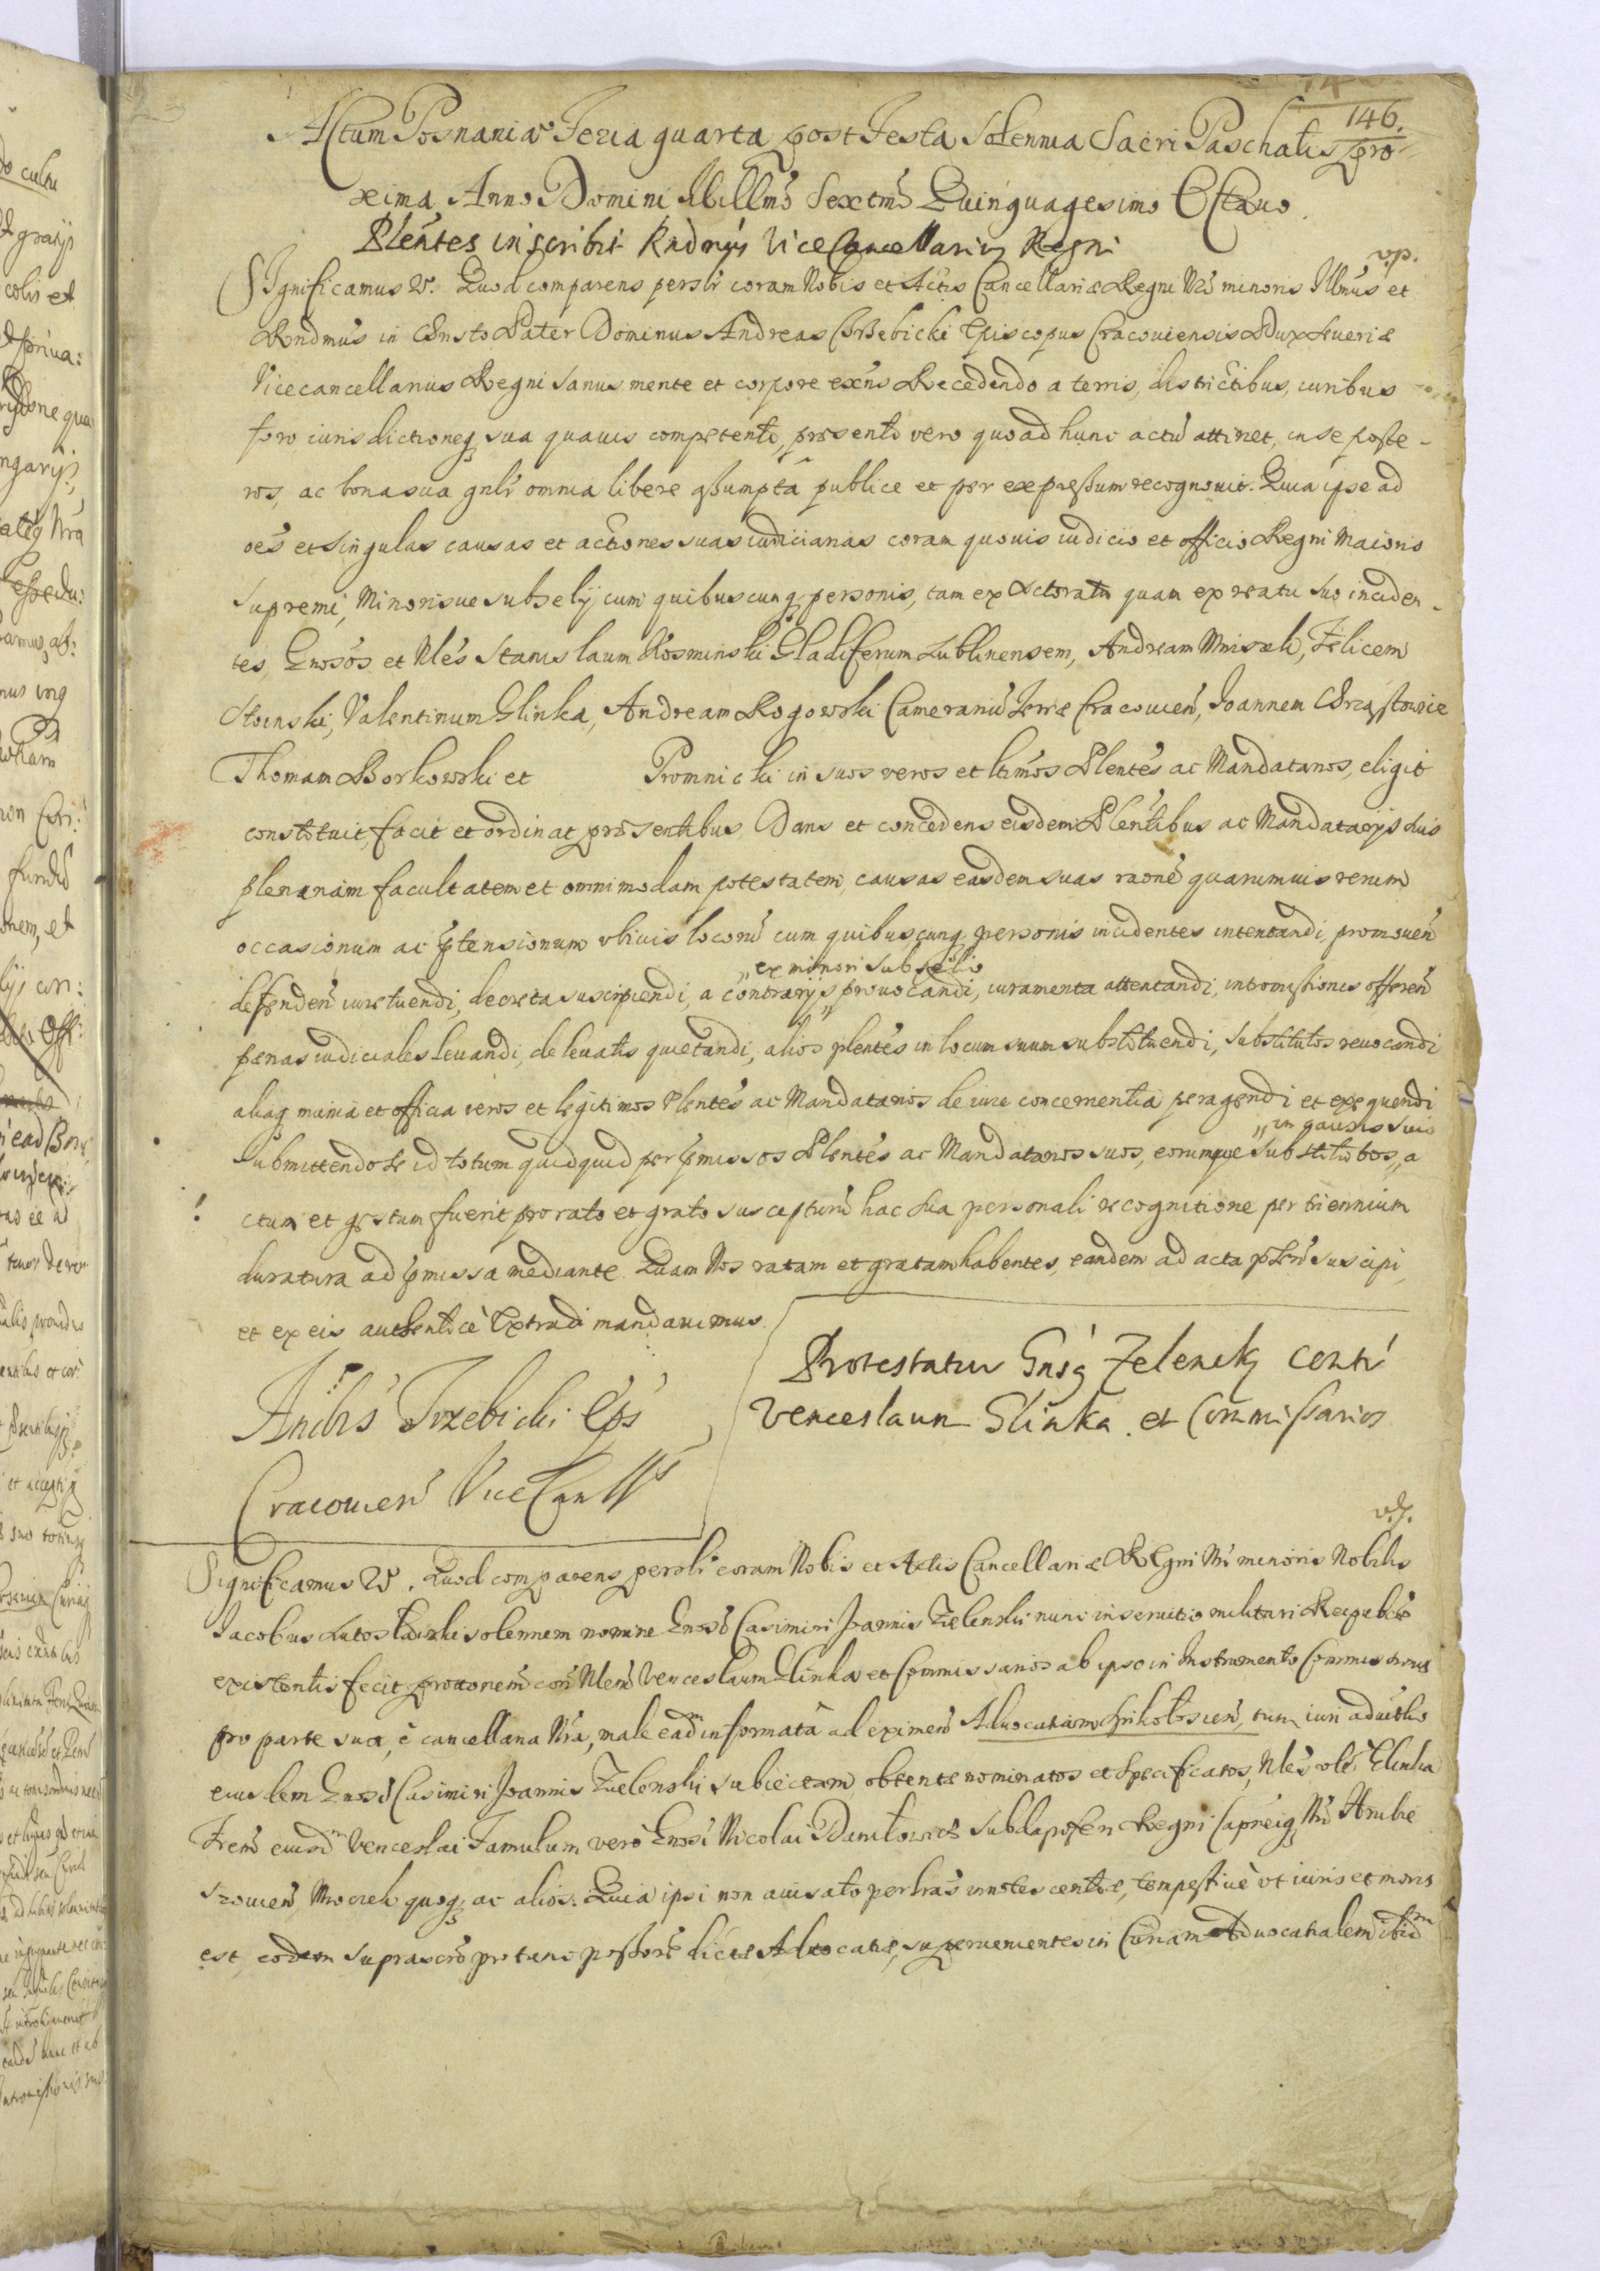 146.
Actum Posnaniæ Feria quarta post Festa Solennia Sacri Paschatis pro
xima Anno Domini Millmo Sextmo Quinquagesimo Octauo.
Plentes inscribit Rndmus ViceCancellarius Regni
Significamus &. Quod comparens persłr coram Nobis et Actis Cancellariæ Regni Nri minoris Illmus et
Rndmus in Christo Pater Dominus Andreas Trzebicki Episcopus Cracouiensis Dux Seueriæ
Vicecancellarius Regni sanus mente et corpore exñs Recedendo a terris, districtibus, iuribus
foro iurisdictioneq sua quauis competenti, præsenti vero quo ad hunc actũ attinet, in se poste-
ros, ac bona sua gnlr omnia libere assumpta publice et per expressum recognouit. Quia ipse ad
oẽs et singulas causas et actiones suas iudiciarias coram quouis iudicio et officio Regni Maioris
Supremi, Minorisue subselij cum quibuscunq personis, tam ex Actoratu quam ex reatu suo inciden-
tes, Gnosos et Nles Stanislaum Kosminski Gladiferum Lublinensem, Andream Mnisek, Felicem
Stoinski, Valentinum Glinka, Andream Rogowski Camerariũ Terræ Cracouien, Joannem Chrząstowie
Thomam Borkowski et Promnicki in suos veros et ltimos Plentes ac Mandatarios, eligit
constituit, facit et ordinat præsentibus Dans et concedens eisdem Plentibus ac Mandatarijs suis
plenariam facultatem et omnimodam potestatem, causas easdem suas raõne quarumuis rerum
occasionum ac ptensionum vbiuis locorũ cum quibuscunq personis incidentes intentandi, promouen
„ex minori subselio
defenden iure tuendi, decreta suscipiendi, a contrarijs „ prouocandi, iuramenta attentandi, intromissiones offeren
pænas iudiciales leuandi, de leuatis quietandi, alios plentes in locum suum substituendi, substitutos reuocandi
aliaq munia et officia veros et legitimos Plentes ac Mandatarios de iure concernentia peragendi et exequendi
„in causis suis
Submittendo se id totum quidquid per pmissos Plentes ac Mandatarios suos, eorumque substitutos „ a
ctum et gestum fuerit pro rato et grato suscepturũ hac sua personali recognitione per triennium
duratura ad pmissa mediante. Quam Nos ratam et gratam habentes, eandem ad acta psen suscipi,
et ex eis authentice Extradi mandauimus.
Andrs Trzebicki Eps
Cracouien ViceCanllrs
Protestatur Gnsq Zelensky contr
Venceslaum Glinka et Commissarios
Significamus &. Quod comparens persłr coram Nobis et Actis Cancellariæ Regni Nri minoris Nobilis
Jacobus Lutosławski solennem nomine Gnosi Casimiri Joannis Zielenski nunc in seruitio militari Reipublicæ
existentis fecit prottonem con Nlem Venceslaum Glinka et Commissarios ab ipso in Instrumento Commissionis
pro parte sua, è cancellaria Nra, male eadm informata ad eximen Aduocatiam, tum iuri aduitali
eiusdem Gnosi Casimiri Joannis Zielenski subiectam, obtente nominatos et specificatos, Nles Glinka
Frem eiusdm Venceslai Famulum vero Gnosi Nicolai Daniłowicz Subdapiferi Regni Capneiq Nri Hrubie
szouien, Mrozek quoq ac alios. Quia ipsi non auisato per lras innotescentiæ, tempestiuè vt iuris et moris
est, eodem suprascro pro tunc possore dictæ Aduocatiæ, superuenientes in Curiam Aduocatialem ibidm